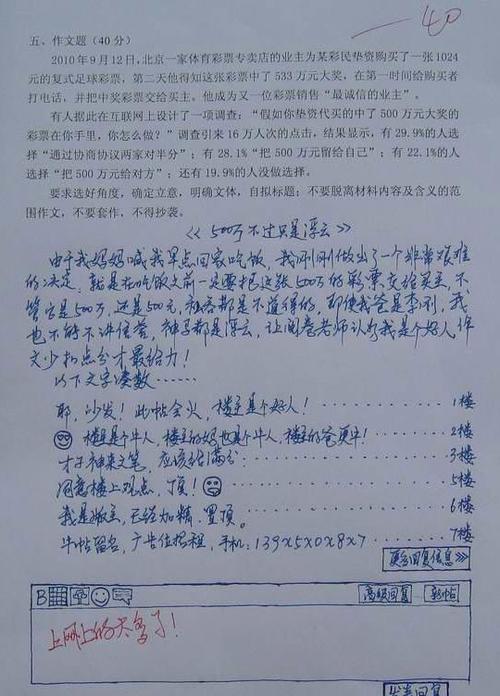 —40
五、作文题（40分）
2010年9月12日,北京一家体育彩票专卖店的业主为某彩民垫资购买了一张1024
元的复式足球彩票，第二天他得知这张彩票中了533万元大奖，在第一时间给购买者
打电话，并把中奖彩票交给买主。他成为又一位彩票销售“最诚信的业主”。
有人据此在互联网上设计了一项调查：“假如你垫资代买的中了500万元大奖的
彩票在你手里，你怎么做？”调查引来16万人次的点击，结果显示，有29.9%的人选
择“通过协商协议两家对半分”；有28.1%“把500万元留给自己”；有22.1%的人
选择“把500万元给对方”；还有19.9%的人没做选择。
要求选好角度，确定立意，明确文体，自拟标题；不要脱离材料内容及含义的范
围作文，不要套作，不得抄袭。
《500万不过只是浮云》
由于我妈妈喊我早点回家吃饭，我刚刚做出了一个非常艰难
的决定，就是在吃饭之前一定要把这张500万的彩票交给买主，不
管它是500万，还是500元，私吞都是不道德的，即便我爸是李刚，我
也不能不讲信誉，神马都是浮云，让阅卷老师认为我是个好人，作
文少扣点分才最给力！
以下文字凑数……
耶，沙发！此帖会火，楼主是个好人！…………1楼
楼主是个牛人，楼主的妈也是个牛人，楼主的爸更牛！……2楼
才子神来之笔，应该给满分…………3楼
同意楼上观点，顶！…………5楼
我是版主，已经加精、置顶。…………6楼
牛帖留名，广告位招租，手机：139x5x0x8x7…7楼
更多回复信息>>>
B
高级回复 新帖
上网上的太多了！
发表回复